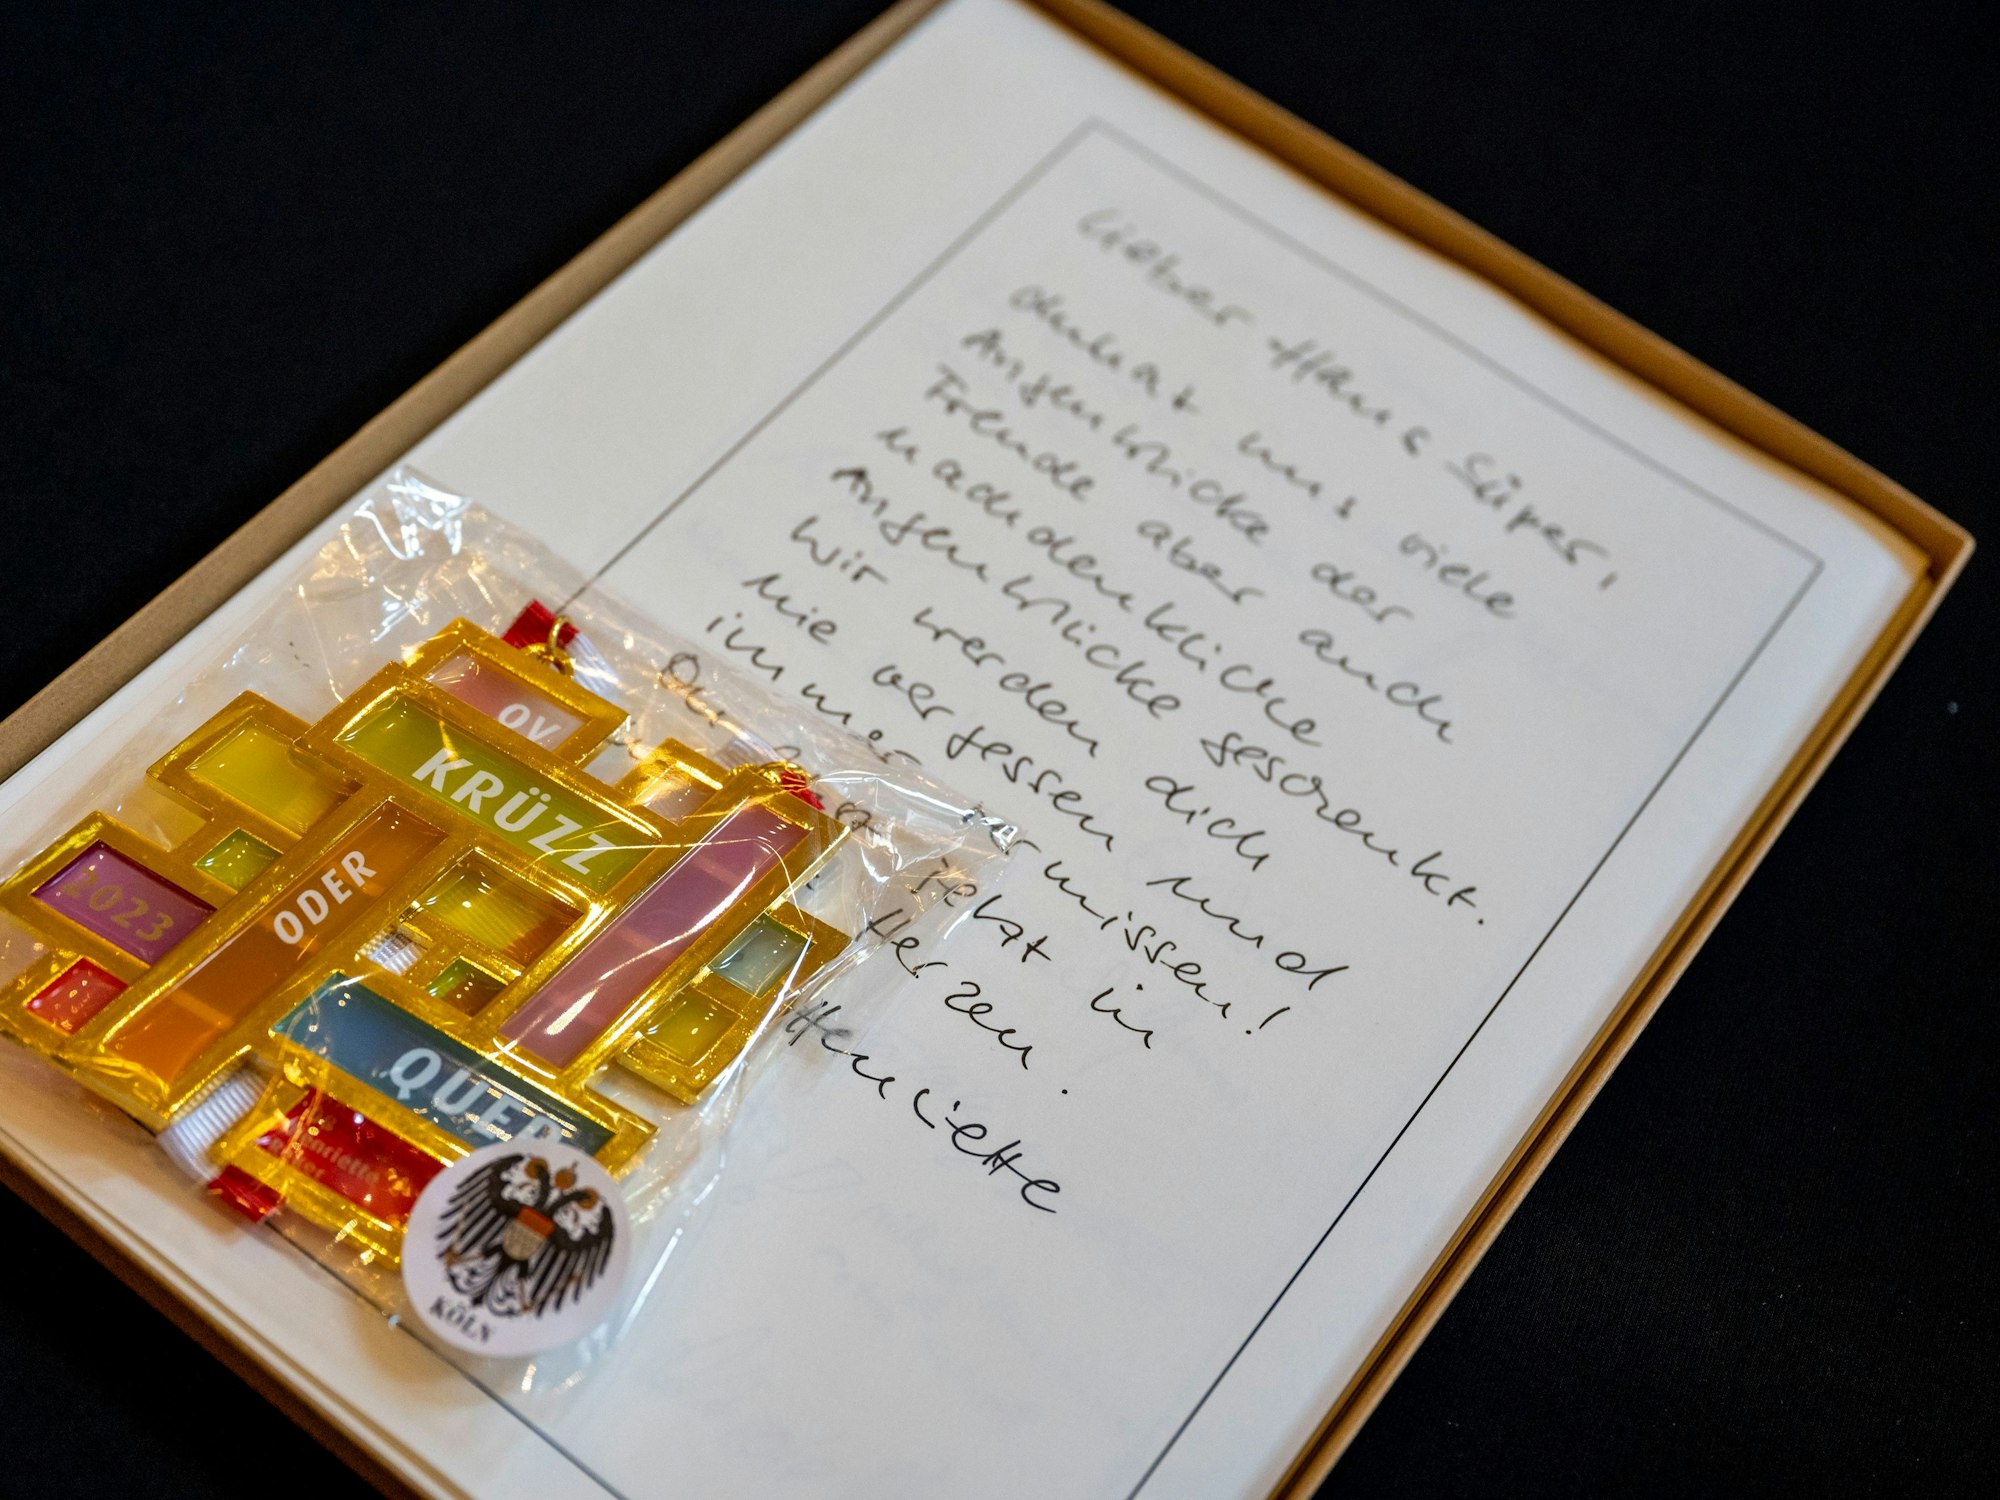 Lieber Hans Süper,
du hast uns viele
Augenblicke der
Freude aber auch
nachdenkliche
Augenblicke geschenkt.
Wir werden dich
nie vergessen und
immer vermissen!
Du jetzt in
Herzen.
Henriette
OV
KRÜZZ
ODER
2023
QUER
KÖLN